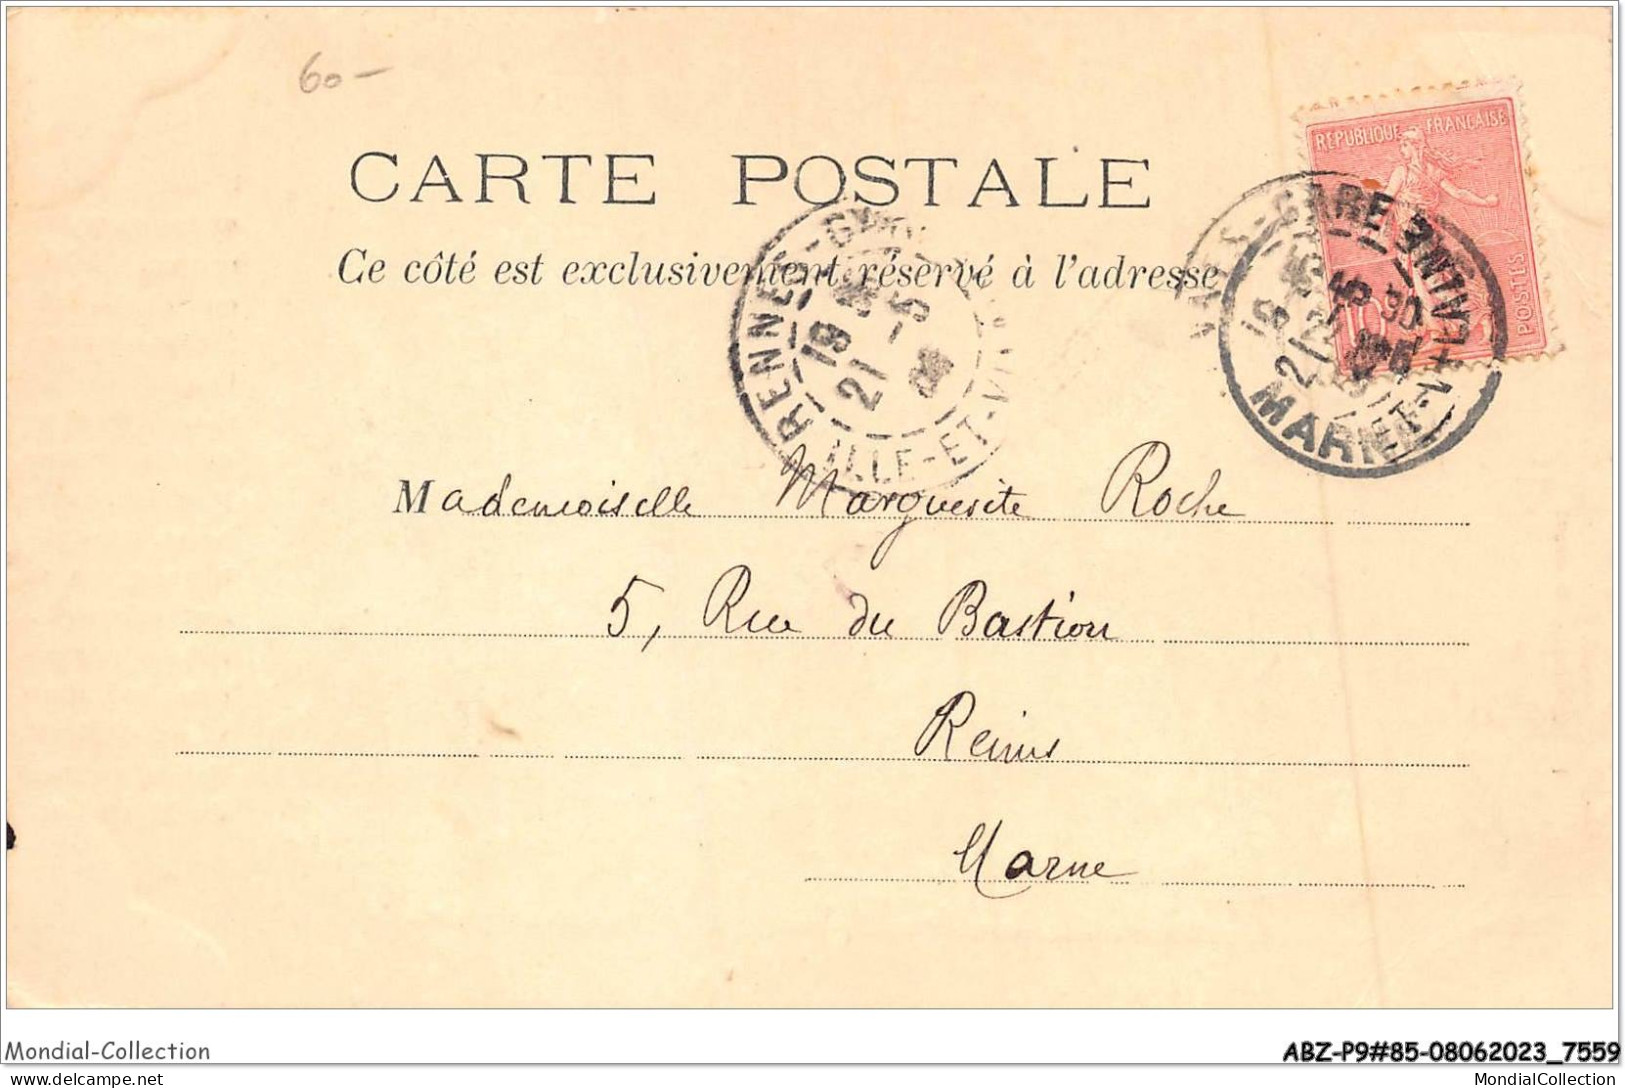 60-
RÉPUBLIQUE FRANÇAISE
POSTES
CARTE POSTALE
Ce côté est exclusivement réservé à l'adresse
RENNES-GARE
19
21 -5
ILLE-ET-VILAINE
GARE
ILLE-ET-VILAINE
MARNE
Mademoiselle Marguerite Roche
5, Rue du Bastion
Reims
Marne
Mondial-Collection
ABZ-P9#85-08062023_7559
www.delcampe.net
MondialCollection